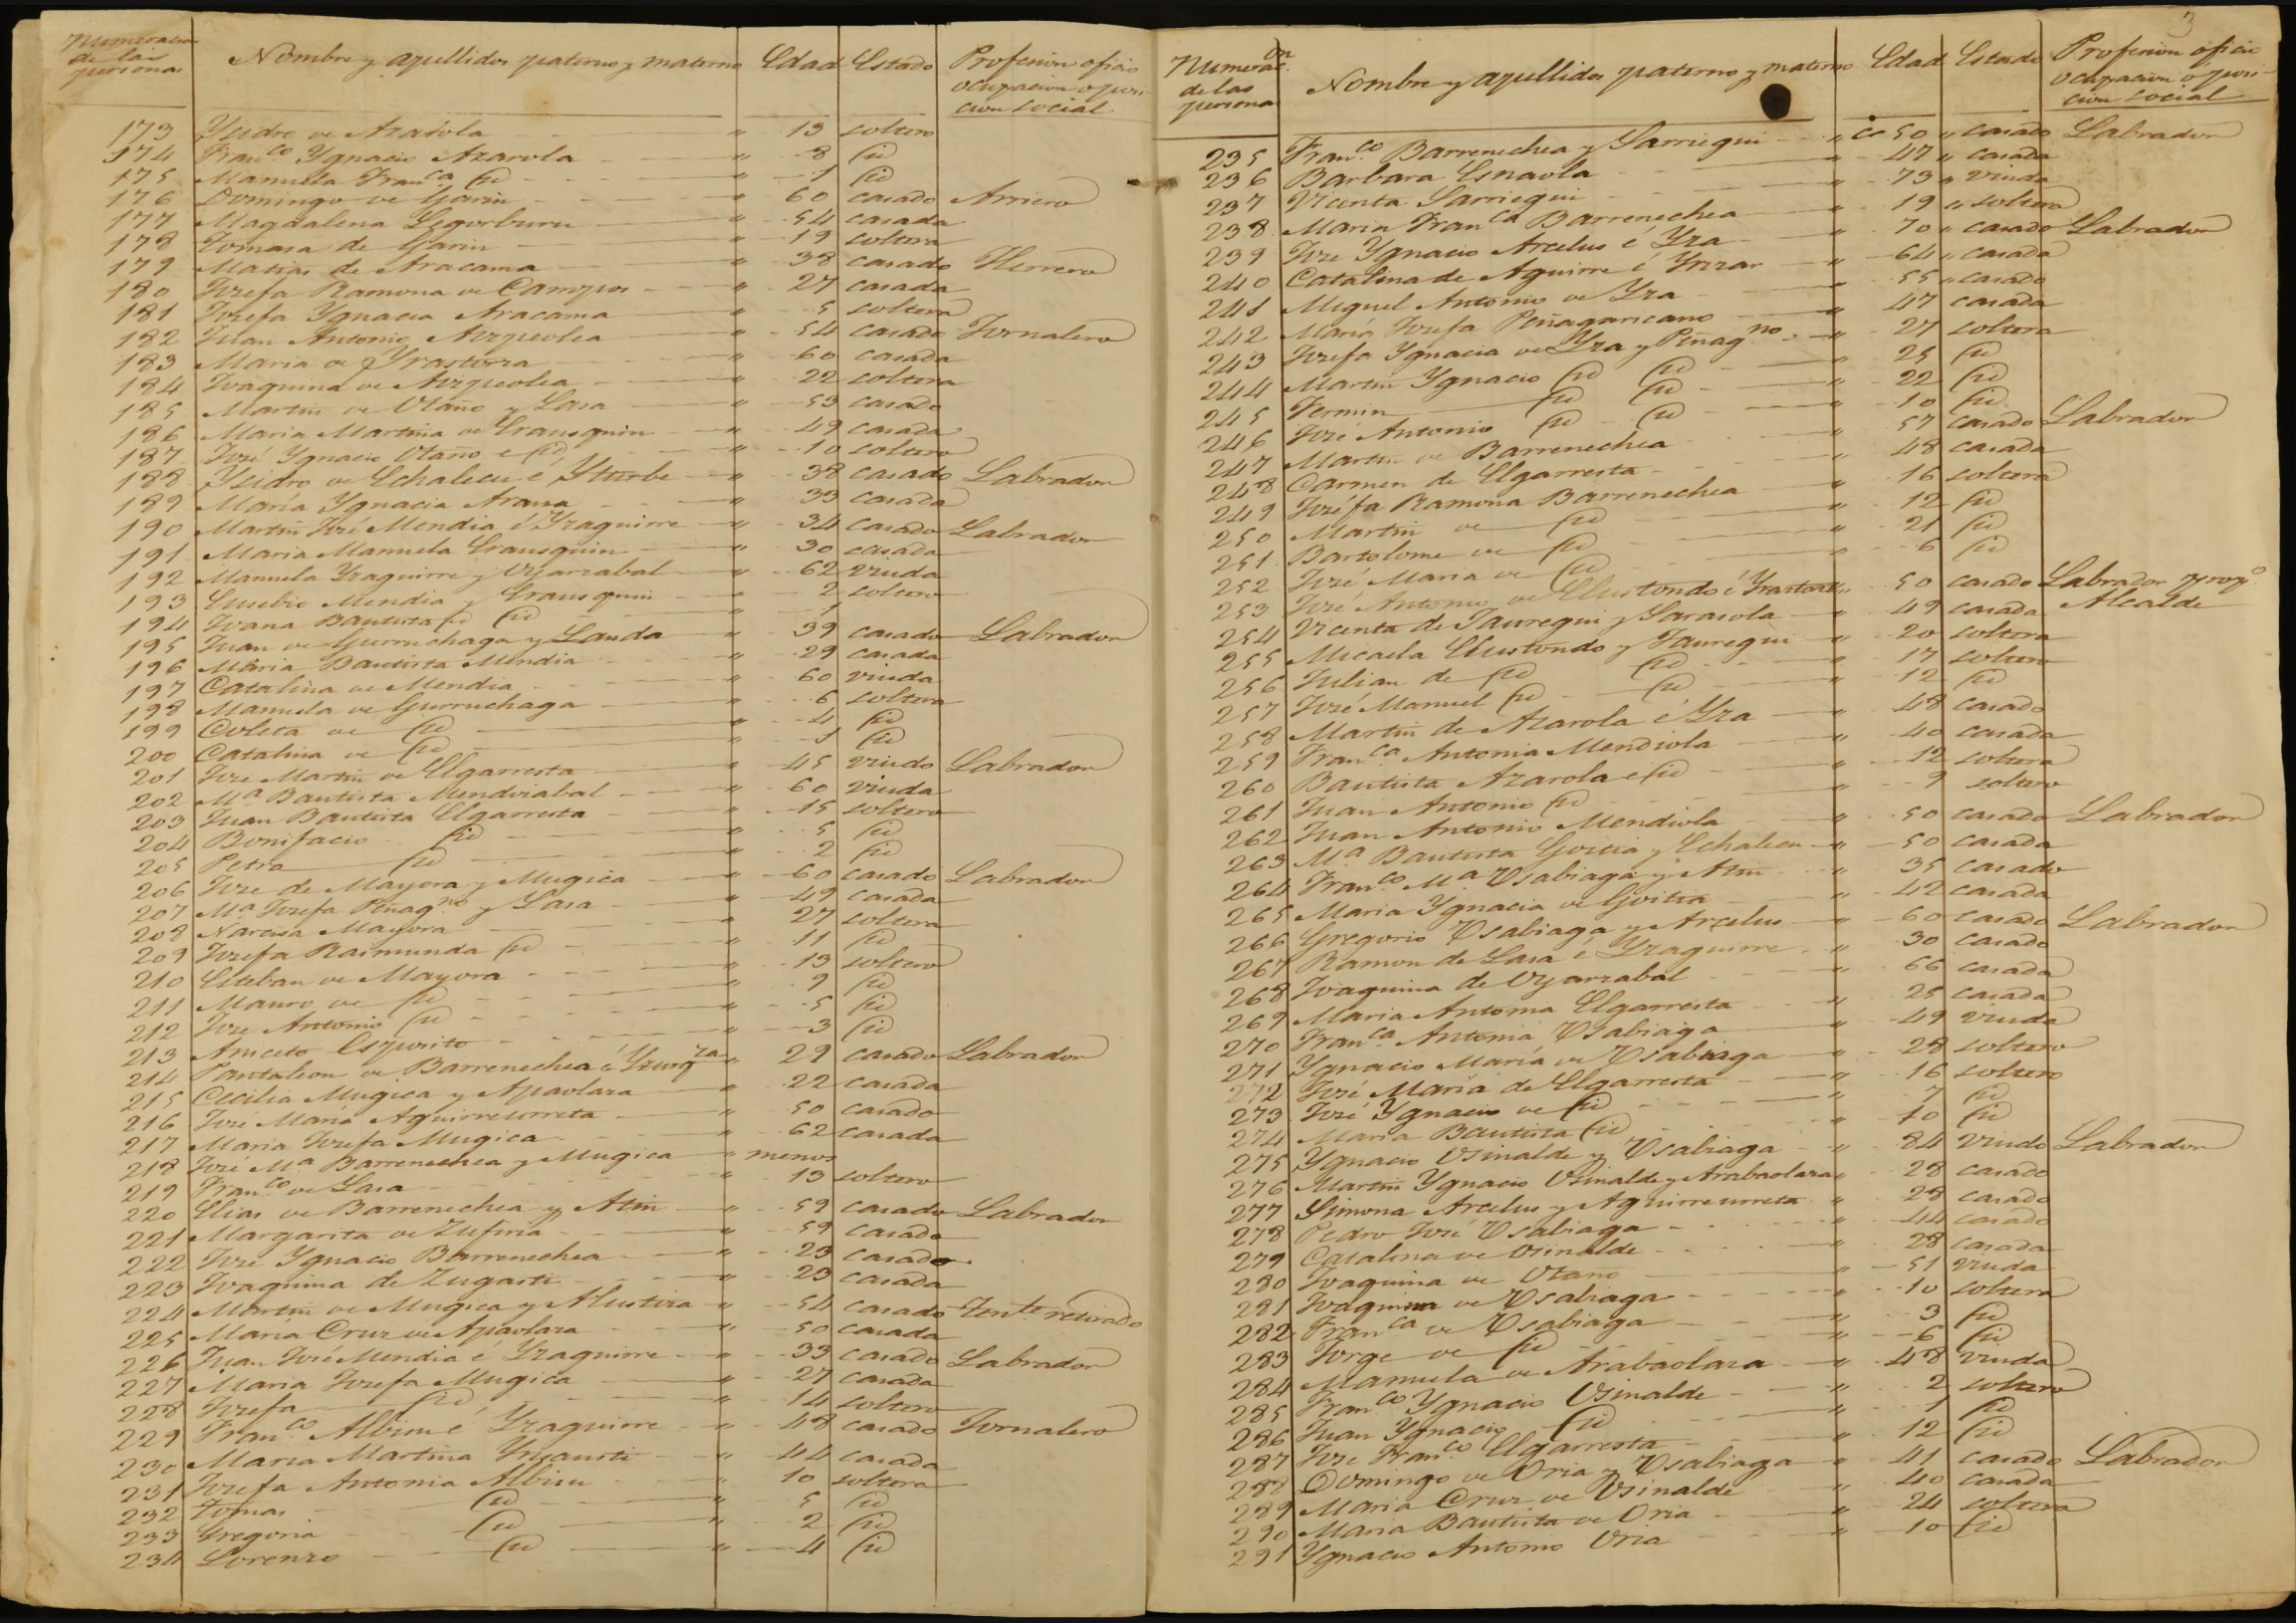 Numeracion de las personas | Nombre y apellidos paterno y materno | Edad | Estado | Profesion oficio ocupacion o posicion social
173 Ysidro de Azarola " 13 soltero
174 Fran.co Ygnacio Azarola " 8 id
175 Manuela Fran.ca id " 1 id
176 Domingo de Garin " 60 casado Arriero
177 Magdalena Legorburu " 54 casada
178 Tomasa de Garin " 19 soltera
179 Matias de Aracama " 38 casado Herrero
180 Josefa Ramona de Campos " 27 casada
181 Josefa Ygnacia Aracama " 5 soltera
182 Juan Antonio Azpeolea " 54 casado Jornalero
183 Maria de Yrastorza " 60 casada
184 Joaquina de Azpeolea " 22 soltera
185 Martin de Otaño y Lasa " 53 casado
186 Maria Martina de Yrausquin " 49 casada
187 José Ygnacio Otaño e id " 10 soltero
188 Ysidro de Echalecu é Yturbe " 38 casado Labrador
189 María Ygnacia Arana " 33 casada
190 Martin José Mendia é Yzaguirre " 34 casado Labrador
191 Maria Manuela Yrausquin " 30 casada
192 Manuela Yzaguirre y Oyarzabal " 62 viuda
193 Eusebio Mendia y Yrausquin " 2 soltero
194 Joana Bautista id id " 1
195 Juan de Gurruchaga y Landa " 39 casado Labrador
196 Maria Bautista Mendia " 29 casada
197 Catalina de Mendia " 60 viuda
198 Manuela de Gurruchaga " 6 soltera
199 Coleta de id " 4 id
200 Catalina de id " 1 id
201 Jose Martin de Elgarresta " 45 viudo Labrador
202 M.a Bautista Mendizabal " 60 viuda
203 Juan Bautista Elgarresta " 15 soltero
204 Bonifacio id " 5 id
205 Petra id " 2 id
206 Jose de Mayora y Mugica " 60 casado Labrador
207 M.a Josefa Peñag.no y Lasa " 49 casada
208 Narcisa Mayora " 27 soltera
209 Josefa Raimunda id " 11 id
210 Esteban de Mayora " 13 soltero
211 Mauro de id " 9 id
212 Jose Antonio id " 5 id
213 Aniceto Espirito " 3 id
214 Pantaleon de Barrenechea é Yzurq.za " 29 casado Labrador
215 Cecilia Mugica y Apaolaza " 22 casada
216 José María Aguirreurreta " 50 casado
217 Maria Josefa Mugica " 62 casada
218 José M.a Barrenechea y Mugica " menor
219 Fran.co de Lasa " 13 soltero
220 Elias de Barrenechea y Atin " 59 casado Labrador
221 Margarita de Zufiria " 59 casada
222 José Ygnacio Barrenechea " 23 casado
223 Joaquina de Zugasti " 23 casada
224 Martin de Mugica y Alustiza " 54 casado Tent.e retirado
225 Maria Cruz de Apaolaza " 50 casada
226 Juan José Mendia é Yzaguirre " 33 casado Labrador
227 Maria Josefa Mugica " 27 casada
228 Josefa id " 14 soltera
229 Fran.co Albisu é Yzaguirre " 48 casado Jornalero
230 Maria Martina Ynsausti " 44 casada
231 Josefa Antonia Albisu " 10 soltera
232 Tomas id " 5 id
233 Gregoria id " 2 id
234 Lorenzo id " 4 id
3
Numerac.on de las personas | Nombre y apellidos paterno y materno | Edad | Estado | Profesion oficio ocupacion o posicion social
235 Fran.co Barrenechea y Sarriegui " 50 " casado Labrador
236 Barbara Esnaola " 47 " casada
237 Vicenta Sarriegui " 73 " viuda
238 Maria Fran.ca Barrenechea " 19 " soltera
239 José Ygnacio Arcelus é Yza " 70 " casado Labrador
240 Catalina de Aguirre é Yrizar " 64 " casada
241 Miguel Antonio de Yza " 55 " casado
242 María Josefa Peñagaricano " 47 casada
243 Josefa Ygnacia de Yza y Peñag.no " 27 soltera
244 Martin Ygnacio id id " 25 id
245 Fermin id id " 22 id
246 José Antonio id id " 10 id
247 Martin de Barrenechea " 57 casado Labrador
248 Carmen de Elgarresta " 48 casada
249 Joséfa Ramona Barrenechea " 16 soltera
250 Martin de id " 12 id
251 Bartolome de id " 21 id
252 José Maria de id " 6 id
253 José Antonio de Elustondo é Yrastorza " 50 casado Labrador y prop.o Alcalde
254 Vicenta de Jauregui y Sarasola " 49 casada
255 Micaela Elustondo y Jauregui " 20 soltera
256 Julian de id id " 17 soltero
257 José Manuel id id " 12 id
258 Martin de Azarola é Yza " 48 casado
259 Fran.ca Antonia Mendiola " 40 casada
260 Bautista Azarola é id " 12 soltera
261 Juan Antonio id " 9 soltero
262 Juan Antonio Mendiola " 50 casado Labrador
263 M.a Bautista Goitia y Echalecu " 50 casada
264 Fran.co M.a Usabiaga y Atin " 35 casado
265 Maria Ygnacia de Goitia " 42 casada
266 Gregorio Usabiaga y Arcelus " 60 casado Labrador
267 Ramon de Lasa é Yzaguirre " 30 casado
268 Joaquina de Oyarzabal " 66 casada
269 Maria Antonia Elgarresta " 25 casada
270 Fran.ca Antonia Usabiaga " 49 viuda
271 Ygnacio María de Usabiaga " 28 soltero
272 José María de Elgarresta " 16 soltero
273 José Ygnacio de id " 7 id
274 Maria Bautista id " 10 id
275 Ygnacio Usinalde y Usabiaga " 84 viudo Labrador
276 Martin Ygnacio Usinalde y Arabaolaza " 28 casado
277 Simona Arcelus y Aguirreurreta " 28 casado
278 Pedro José Usabiaga " 44 casado
279 Catalina de Usinalde " 28 casada
280 Joaquina de Otano " 51 viuda
281 Joaquina de Usabiaga " 10 soltera
282 Fran.ca de Usabiaga " 3 id
283 Jorge de id " 6 id
284 Manuela de Arabaolaza " 48 viuda
285 Fran.co Ygnacio Usinalde " 2 soltero
286 Juan Ygnacio id " 1 id
287 José Fran.co Elgarresta " 12 id
288 Domingo de Oria y Usabiaga " 41 casado Labrador
289 Maria Cruz de Usinalde " 40 casada
290 Maria Bautista de Oria " 24 soltera
291 Ygnacio Antonio Oria " 10 id